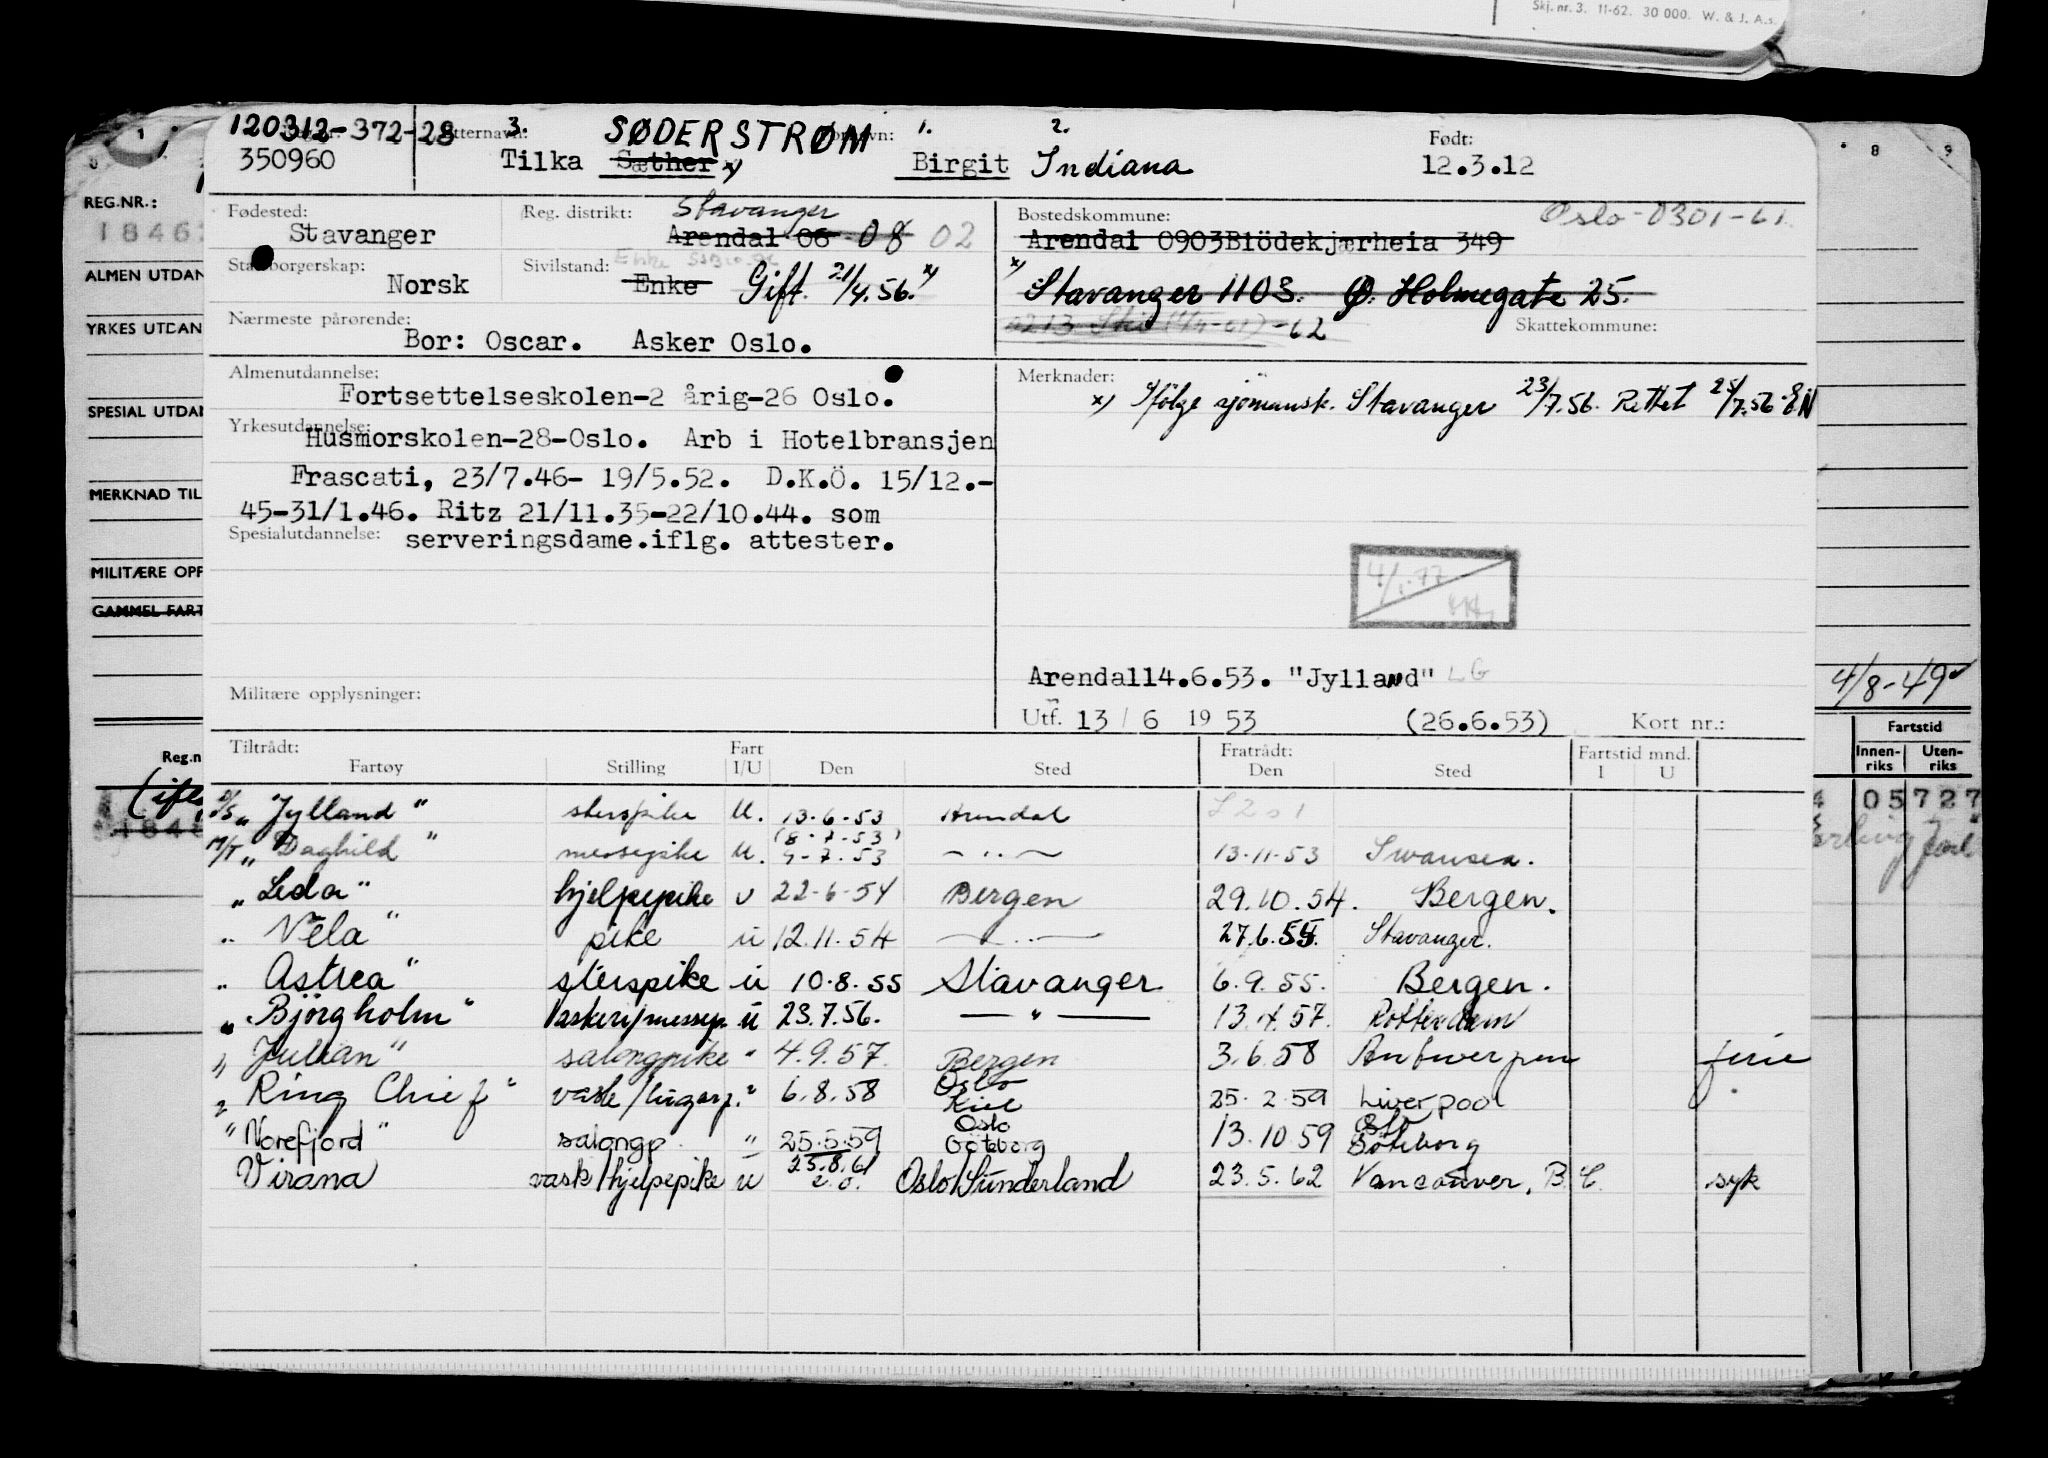 Skj. nr. 3. 11-62. 30 000. W. & J. A.s.
120312-372-28 Etternavn: 3. SØDERSTRØM 1. 2. Født:
350960 Tilka Sæther x) Birgit Indiana 12.3.12
REG.NR.:
Fødested: Reg. distrikt: Stavanger Bostedskommune: Oslo-0301-61.
Stavanger Arendal 06 08 02 Arendal 0903 Blödekjærheia 349
ALMEN UTDAN
Statsborgerskap: Sivilstand:
Norsk Enke Gift. 21/4.56. x) x) Stavanger 1103. Ø. Holmegate 25.
YRKES UTDAN
Nærmeste pårørende: -62 Skattekommune:
Bor: Oscar. Asker Oslo.
Almenutdannelse: Merknader:
Fortsettelseskolen-2 årig-26 Oslo. x) Ifölge sjömansk. Stavanger 23/7.56. Rettet 25/7.56 EN
SPESIAL UTDAN
Yrkesutdannelse:
Husmorskolen-28-Oslo. Arb i Hotelbransjen
Frascati, 23/7.46- 19/5.52. D.K.Ö. 15/12.-
MERKNAD TIL
45-31/1.46. Ritz 21/11.35-22/10.44. som
Spesialutdannelse: serveringsdame.iflg. attester.
MILITÆRE OPP
4/1.77
GAMMEL FART
Arendal14.6.53. "Jylland" LG
4/8-49
Militære opplysninger:
Utf. 13 / 6 19 53 (26.6.53) Kort nr.:
Fartstid
Innen-riks Uten-riks
Tiltrådt: Fart Fratrådt: Fartstid mnd.
Fartøy Stilling I/U Den Sted Den Sted I U
Reg.n
D/S "Jylland" sterspike U. 13.6.53 Arendal
05727
(8.7.53)
M/T "Daghild" messepike U. 9.7.53 — " — 13.11.53 Swansea.
"Leda" hjelpepike u 22-6-54 Bergen 29.10.54. Bergen.
" Vela" pike u 12.11.54 — " — 27.6.55. Stavanger.
" Astrea" sterspike u 10.8.55 Stavanger 6.9.55. Bergen.
" Björgholm" Vaskeri/messep. u 23.7.56. — " — 13.4.57. Rotterdam
" Julian" salongpike " 4.9.57. Bergen 3.6.58 Antwerpen ferie
" Ring Chief" vask/lugarp. " 6.8.58 Oslo Kiel 25.2.59 Liverpool
"Norefjord" salongp. " 25.5.59 Oslo Göteborg 13.10.59 Oslo Göteborg
Virana vask/hjelpepike u 25.8.61 Oslo/Sunderland 23.5.62 Vancouver, B.C. syk